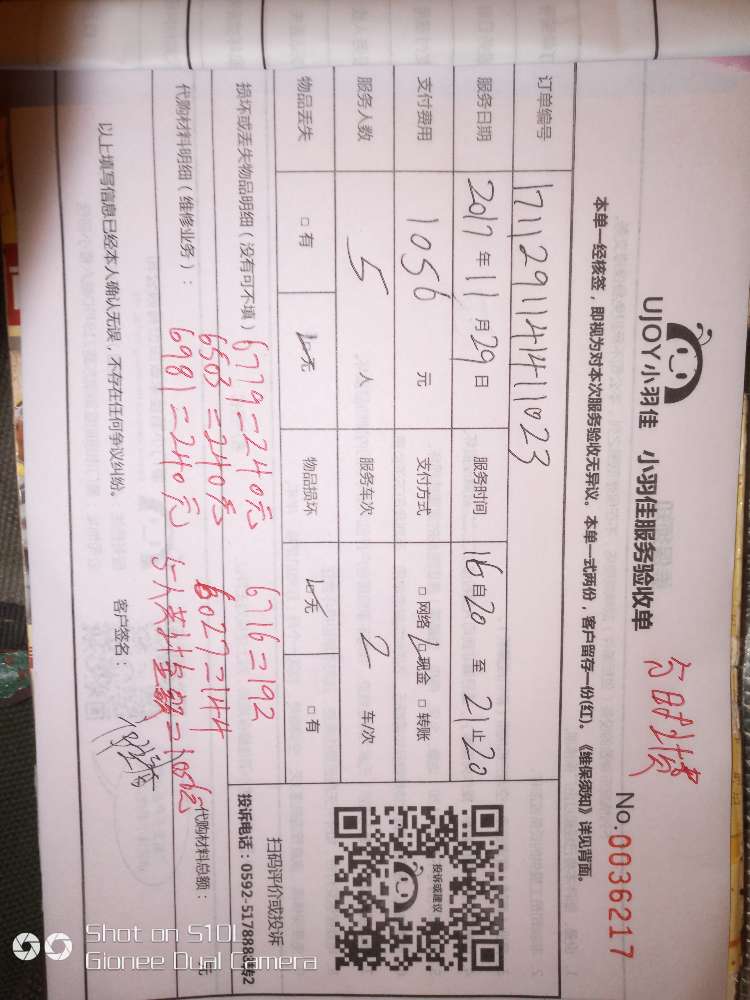 UJOY小羽佳 小羽佳服务验收单
No.0036217
本单一经核签，即视为对本次服务验收无异议。本单一式两份，客户留存一份(红)。《维保须知》详见背面。
订单编号 171129114141023
服务日期 2017 年 11 月 29 日 服务时间 16 自 20 至 21 止 20
支付费用 1056 元 支付方式 □ 网络 □ 现金 □ 转账
服务人数 5 人 服务车次 2 车/次
物品丢失 □ 有 □ 无 物品损坏 □ 无 □ 有
损坏或丢失物品明细（没有可不填） 6779=240元 6716=192
6503=240元 6027=144
代购材料明细（维修业务）： 6981=240元 5人共计金额=1056元 代购材料总额： 元
以上填写信息已经本人确认无误，不存在任何争议纠纷。 客户签名：
投诉或建议
扫码评价或投诉
投诉电话：0592-5178883转2
Shot on S10L
Gionee Dual Camera